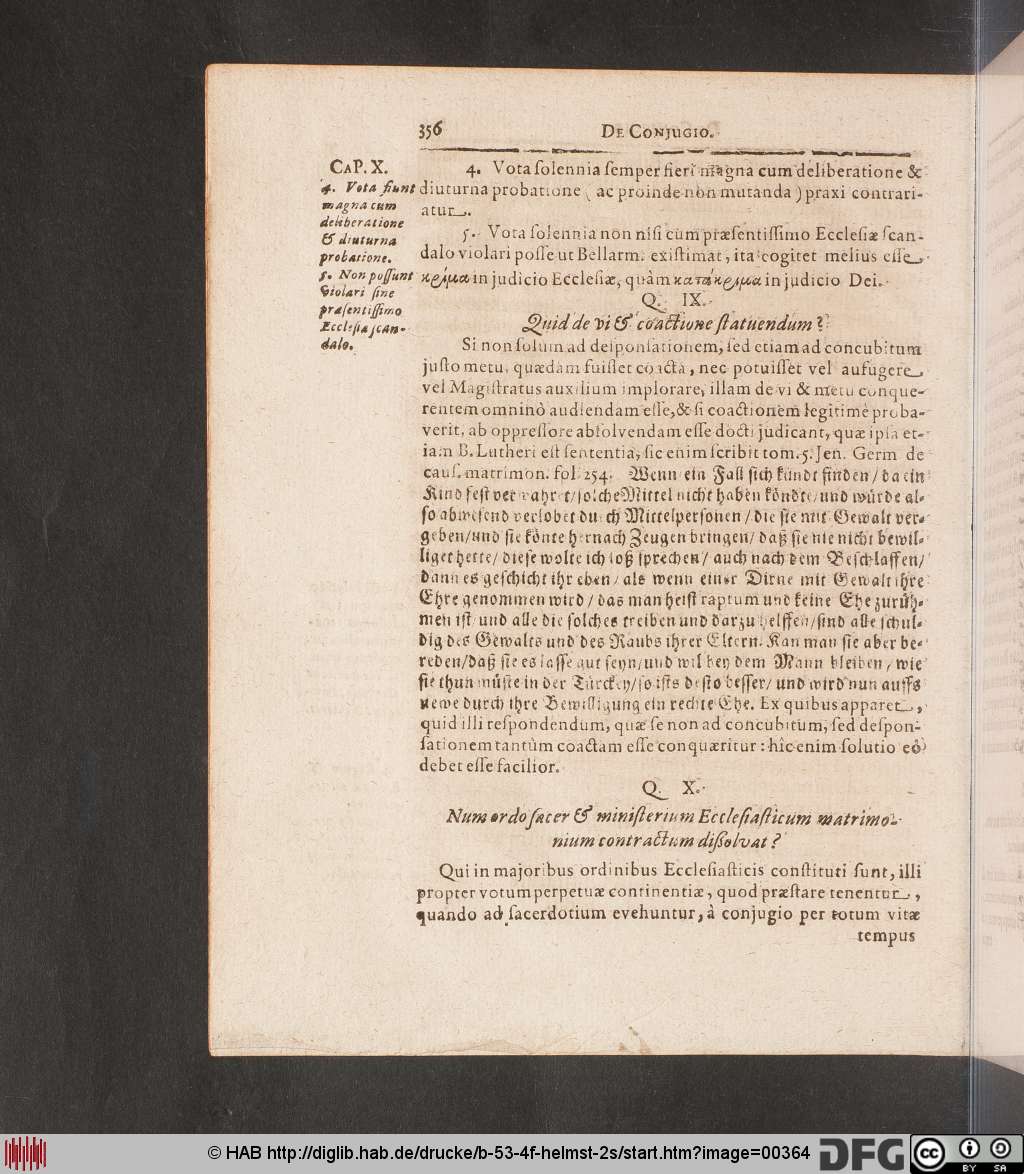 356
DE CONJUGIO.
CAP. X.
4. Vota fiunt
magna cum
deliberatione
& diuturna
probatione.
5. Non possunt
violari sine
præsentissimo
Ecclesiæ scan-
dalo.
4. Vota solennia semper fieri magna cum deliberatione &
diuturna probatione (ac proinde non mutanda) praxi contrari-
atur.
5. Vota solennia non nisi cum præsentissimo Ecclesiæ scan-
dalo violari posse ut Bellarm. existimat, ita cogitet melius esse
κρίμα in judicio Ecclesiæ, quàm κατάκριμα in judicio Dei.
Q. IX.
Quid de vi & coactione statuendum?
Si non solum ad desponsationem, sed etiam ad concubitum
justo metu, quædam fuisset coacta, nec potuisset vel aufugere
vel Magistratus auxilium implorare, illam de vi & metu conque-
rentem omninò audiendam esse, & si coactionem legitimè proba-
verit, ab oppressore absolvendam esse docti judicant, quæ ipsa et-
iam B. Lutheri est sententia, sic enim scribit tom. 5. Jen. Germ de
caus. matrimon. fol. 254. Wenn ein Fall sich kündt finden / da ein
Kind fest verwahret / solche Mittel nicht haben köndte / und würde al-
so abwesend verlobet durch Mittelpersonen / die sie mit Gewalt ver-
geben / und sie könte hernach Zeugen bringen / daß sie nie nicht bewil-
liget hette / diese wolte ich loß sprechen / auch nach dem Beschlaffen /
dann es geschicht ihr eben / als wenn einer Dirne mit Gewalt ihre
Ehre genommen wird / das man heist raptum und keine Ehe zurüh-
men ist / und alle die solches treiben und darzu helffen / sind alle schul-
dig des Gewalts und des Raubs ihrer Eltern. Kan man sie aber be-
reden / daß sie es lasse gut seyn / und wil bey dem Mann bleiben / wie
sie thun müste in der Türckey / so ists desto besser / und wird nun auffs
newe durch ihre Bewilligung ein rechte Ehe. Ex quibus apparet,
quid illi respondendum, quæ se non ad concubitum, sed despon-
sationem tantùm coactam esse conquæritur: hîc enim solutio eò
debet esse facilior.
Q. X.
Num ordo sacer & ministerium Ecclesiasticum matrimo-
nium contractum dissolvat?
Qui in majoribus ordinibus Ecclesiasticis constituti sunt, illi
propter votum perpetuæ continentiæ, quod præstare tenentur,
quando ad sacerdotium evehuntur, à conjugio per totum vitæ
tempus
© HAB http://diglib.hab.de/drucke/b-53-4f-helmst-2s/start.htm?image=00364
DFG
cc
BY SA